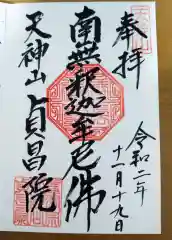 奉拝
令和二年
十一月十九日
南無釈迦牟尼佛
天神山
貞昌院